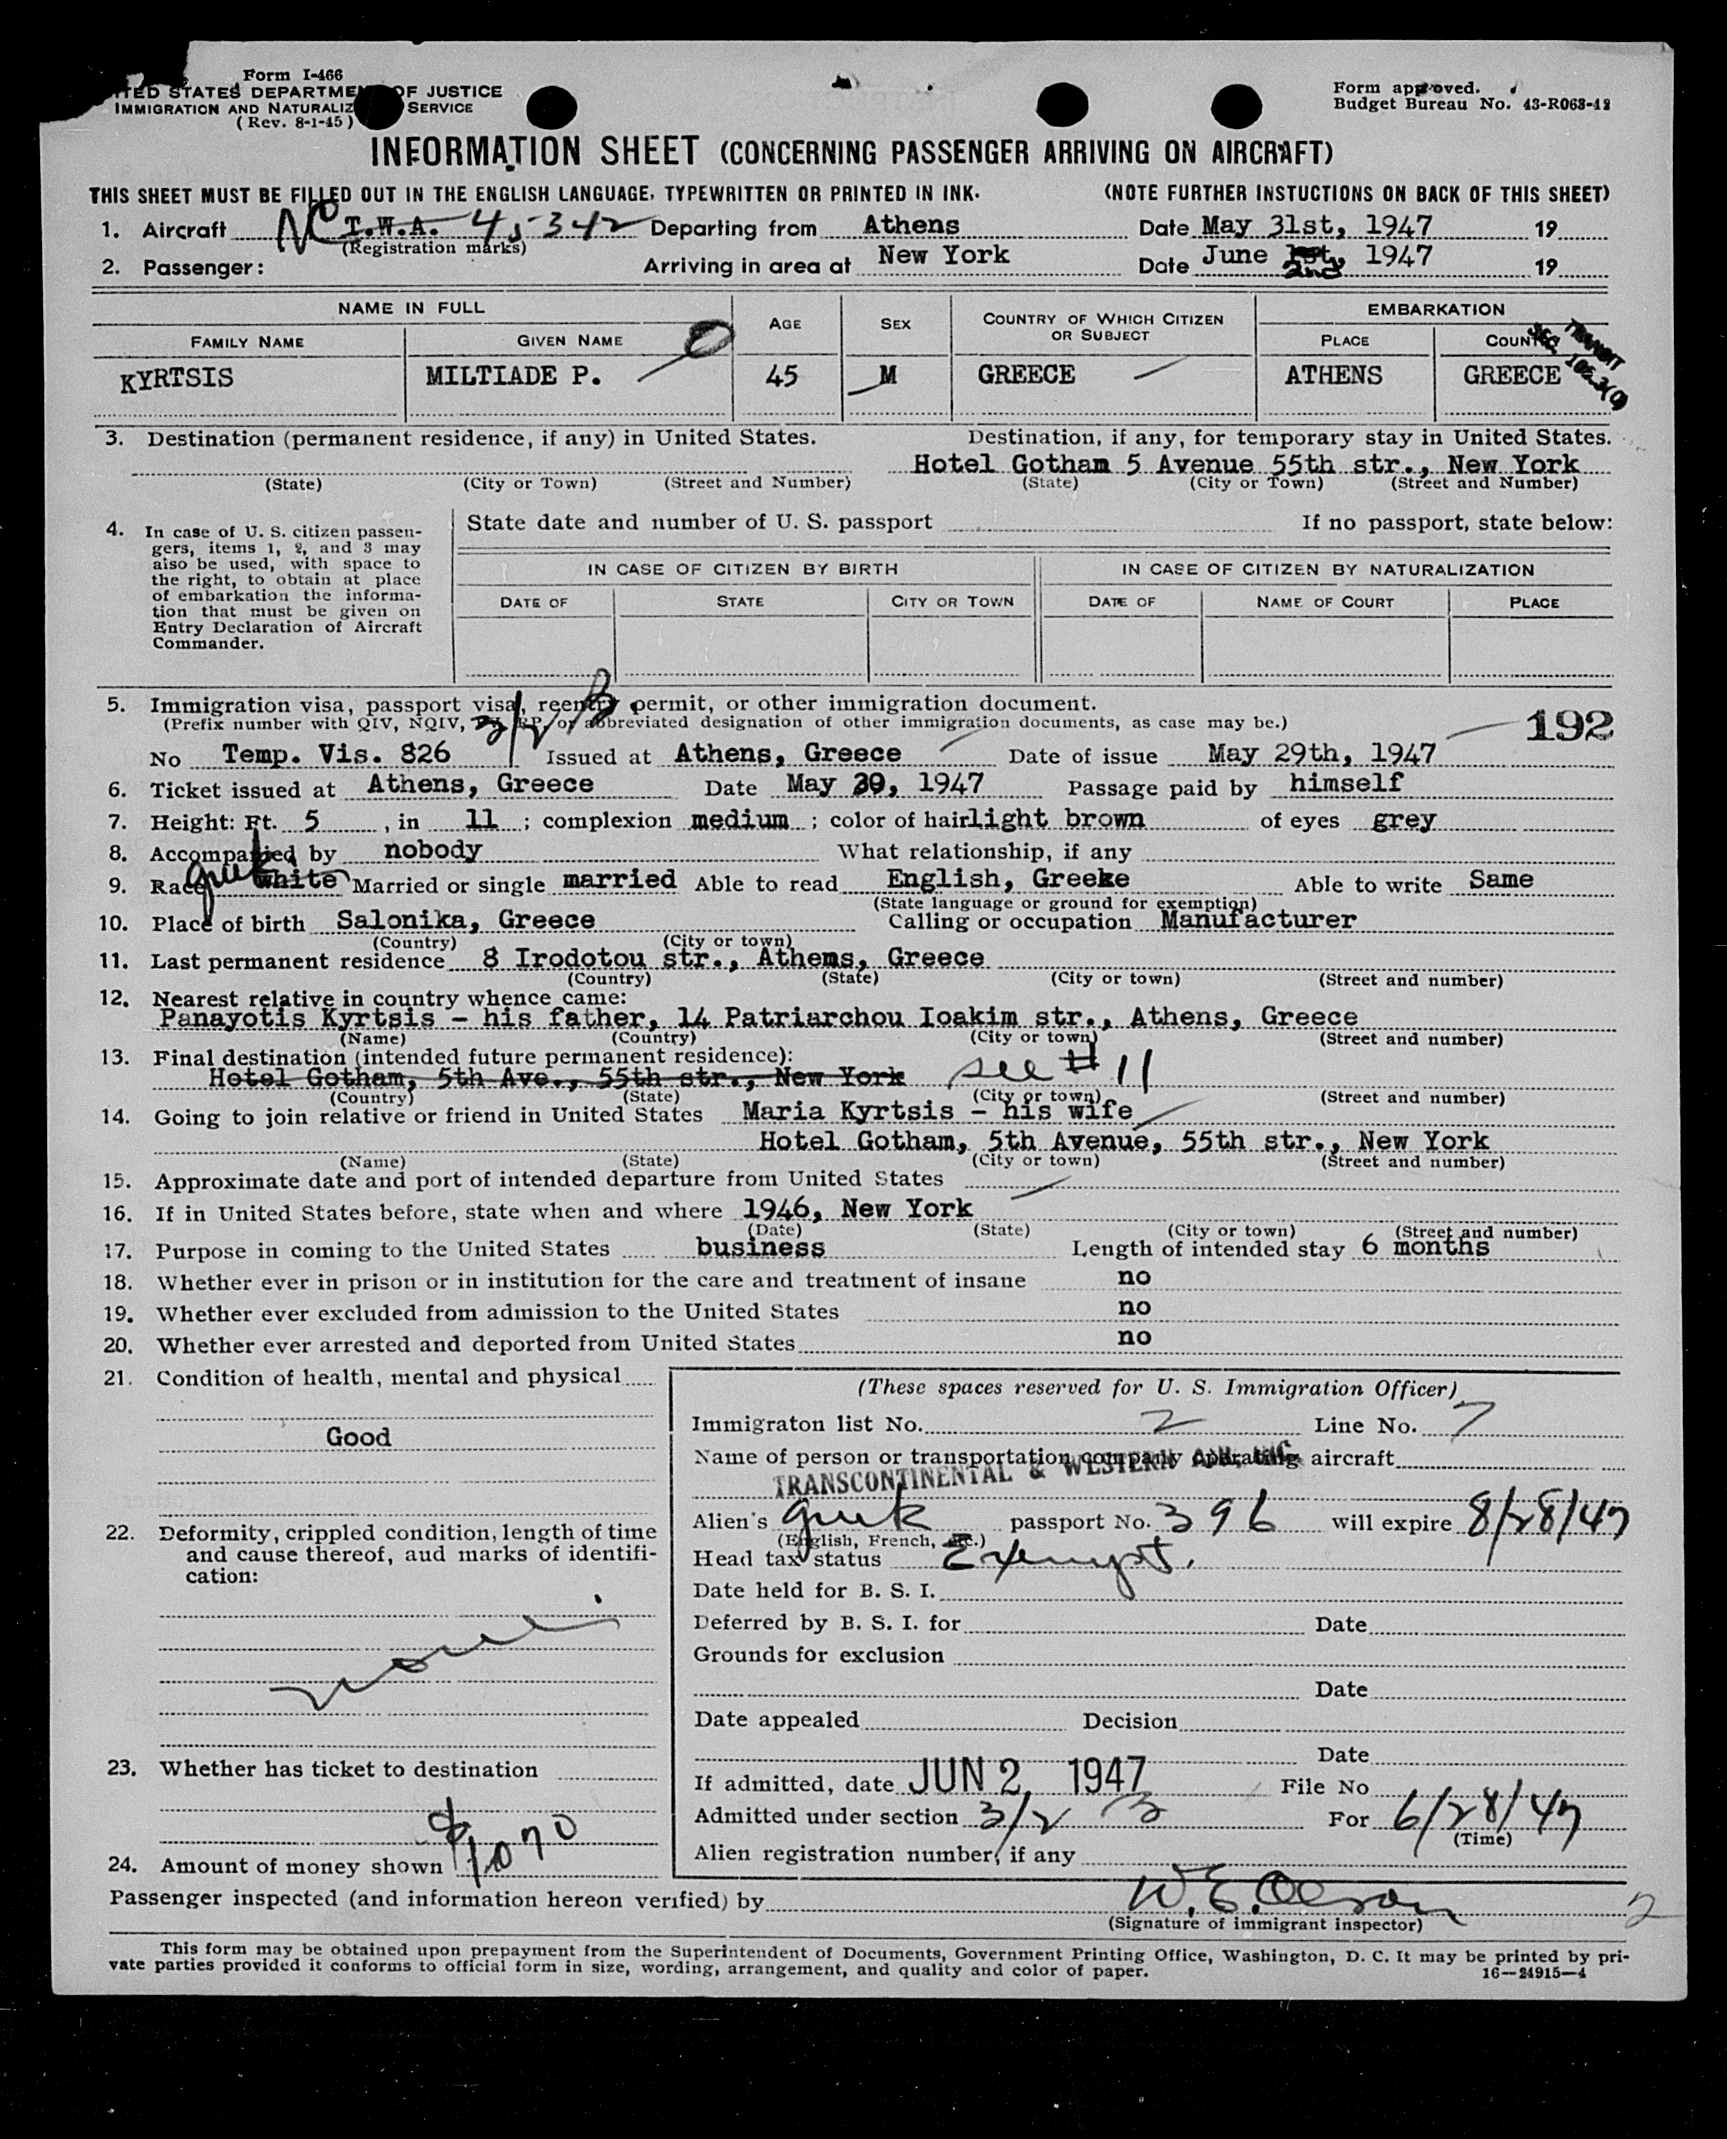 Form I-466
UNITED STATES DEPARTMENT OF JUSTICE
IMMIGRATION AND NATURALIZATION SERVICE
(Rev. 8-1-45)
Form approved.
Budget Bureau No. 43-R063-42
INFORMATION SHEET (CONCERNING PASSENGER ARRIVING ON AIRCRAFT)
THIS SHEET MUST BE FILLED OUT IN THE ENGLISH LANGUAGE, TYPEWRITTEN OR PRINTED IN INK. (NOTE FURTHER INSTUCTIONS ON BACK OF THIS SHEET)
1. Aircraft NC T.W.A. 45342 Departing from Athens Date May 31st, 1947 19
(Registration marks)
2. Passenger: Arriving in area at New York Date June 1st, 2nd 1947 19
NAME IN FULL AGE SEX COUNTRY OF WHICH CITIZEN OR SUBJECT EMBARKATION
FAMILY NAME GIVEN NAME PLACE COUNTRY
TRANSIT
SEC. 105.3(
KYRTSIS MILTIADE P. 45 M GREECE ATHENS GREECE
3. Destination (permanent residence, if any) in United States. Destination, if any, for temporary stay in United States.
Hotel Gotham 5 Avenue 55th str., New York
(State) (City or Town) (Street and Number) (State) (City or Town) (Street and Number)
4. In case of U. S. citizen passen-
gers, items 1, 2, and 3 may
also be used, with space to
the right, to obtain at place
of embarkation the informa-
tion that must be given on
Entry Declaration of Aircraft
Commander.
State date and number of U. S. passport If no passport, state below:
IN CASE OF CITIZEN BY BIRTH IN CASE OF CITIZEN BY NATURALIZATION
DATE OF STATE CITY OR TOWN DATE OF NAME OF COURT PLACE
5. Immigration visa, passport visa, reentry permit, or other immigration document.
(Prefix number with QIV, NQIV, PV, RP, or abbreviated designation of other immigration documents, as case may be.)
3/2 B
192
No Temp. Vis. 826 Issued at Athens, Greece Date of issue May 29th, 1947
6. Ticket issued at Athens, Greece Date May 30, 1947 Passage paid by himself
7. Height: Ft. 5, in 11; complexion medium; color of hair light brown of eyes grey
8. Accompanied by nobody What relationship, if any
9. Race white Greek Married or single married Able to read English, Greeke Able to write Same
(State language or ground for exemption)
10. Place of birth Salonika, Greece Calling or occupation Manufacturer
(Country) (City or town)
11. Last permanent residence 8 Irodotou str., Athens, Greece
(Country) (State) (City or town) (Street and number)
12. Nearest relative in country whence came:
Panayotis Kyrtsis - his father, 14 Patriarchou Ioakim str., Athens, Greece
(Name) (Country) (City or town) (Street and number)
13. Final destination (intended future permanent residence):
Hotel Gotham, 5th Ave., 55th str., New York see # 11
(Country) (State) (City or town) (Street and number)
14. Going to join relative or friend in United States Maria Kyrtsis - his wife
Hotel Gotham, 5th Avenue, 55th str., New York
(Name) (State) (City or town) (Street and number)
15. Approximate date and port of intended departure from United States
16. If in United States before, state when and where 1946, New York
(Date) (State) (City or town) (Street and number)
17. Purpose in coming to the United States business Length of intended stay 6 months
18. Whether ever in prison or in institution for the care and treatment of insane no
19. Whether ever excluded from admission to the United States no
20. Whether ever arrested and deported from United States no
21. Condition of health, mental and physical
Good
22. Deformity, crippled condition, length of time
and cause thereof, aud marks of identifi-
cation:
none
23. Whether has ticket to destination
24. Amount of money shown $1070
(These spaces reserved for U. S. Immigration Officer)
Immigraton list No. 2 Line No. 7
Name of person or transportation company operating aircraft
TRANSCONTINENTAL & WESTERN AIR, INC.
Alien's Greek passport No. 396 will expire 8/28/47
(English, French, etc.)
Head tax status Exempt.
Date held for B. S. I.
Deferred by B. S. I. for Date
Grounds for exclusion
Date
Date appealed Decision
Date
If admitted, date JUN 2 1947 File No
Admitted under section 3/2 B For 6/28/47
(Time)
Alien registration number, if any
Passenger inspected (and information hereon verified) by W. E. Olson 2
(Signature of immigrant inspector)
This form may be obtained upon prepayment from the Superintendent of Documents, Government Printing Office, Washington, D. C. It may be printed by pri-
vate parties provided it conforms to official form in size, wording, arrangement, and quality and color of paper. 16—24915—4